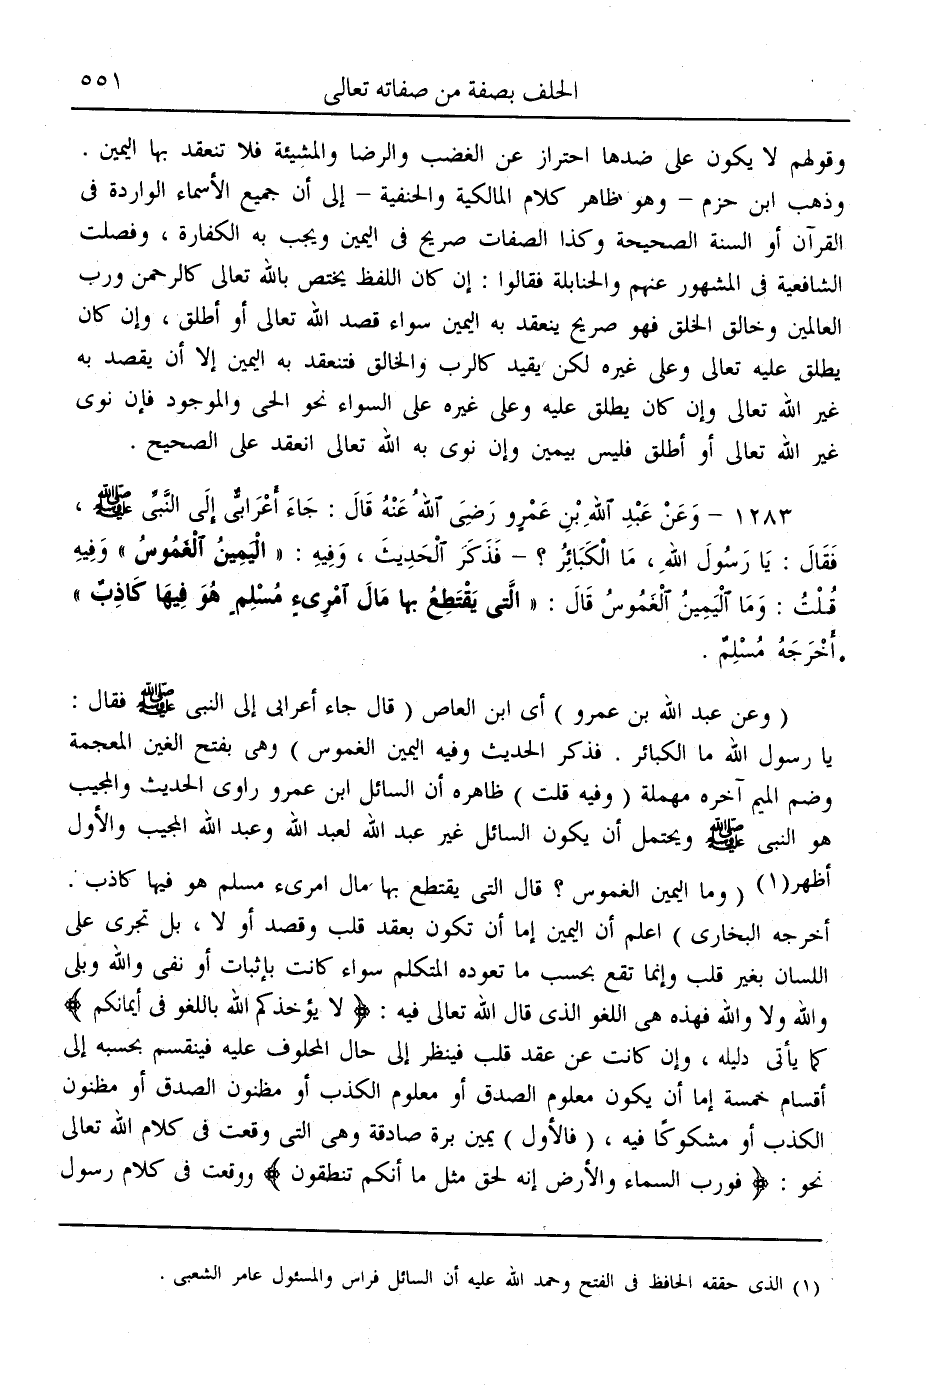 الحلف بصفة من صفاته تعالى ٥٥١
وقولهم لا يكون على ضدها احتراز عن الغضب والرضا والمشيئة فلا تنعقد بها اليمين .
وذهب ابن حزم – وهو ظاهر كلام المالكية والحنفية – إلى أن جميع الأسماء الواردة فى
القرآن أو السنة الصحيحة وكذا الصفات صريح فى اليمين ويجب به الكفارة ، وفصلت
الشافعية فى المشهور عنهم والحنابلة فقالوا : إن كان اللفظ يختص بالله تعالى كالرحمن ورب
العالمين وخالق الخلق فهو صريح ينعقد به اليمين سواء قصد الله تعالى أو أطلق ، وإن كان
يطلق عليه تعالى وعلى غيره لكن يقيد كالرب والخالق فتنعقد به اليمين إلا أن يقصد به
غير الله تعالى وإن كان يطلق عليه وعلى غيره على السواء نحو الحى والموجود فإن نوى
غير الله تعالى أو أطلق فليس بيمين وإن نوى به الله تعالى انعقد على الصحيح .
١٢٨٣ – وَعَنْ عَبْدِ اللهِ بْنِ عَمْرٍو رَضِىَ اللهُ عَنْهُ قَالَ : جَاءَ أَعْرَابِىٌّ إِلَى النَّبِىِّ ﷺ ،
فَقَالَ : يَا رَسُولَ اللهِ ، مَا الْكَبَائِرُ ؟ – فَذَكَرَ الْحَدِيثَ ، وَفِيهِ : « الْيَمِينُ الْغَمُوسُ » وَفِيهِ
قُلْتُ : وَمَا الْيَمِينُ الْغَمُوسُ قَالَ : « الَّتى يَقْتَطِعُ بها مَالَ امْرِىءٍ مُسْلِمٍ هُوَ فِيهَا كَاذِبٌ »
. أَخْرَجَهُ مُسْلِمٌ .
( وعن عبد الله بن عمرو ) أى ابن العاص ( قال جاء أعرابى إلى النبى ﷺ فقال :
يا رسول الله ما الكبائر . فذكر الحديث وفيه اليمين الغموس ) وهى بفتح الغين المعجمة
وضم الميم آخره مهملة ( وفيه قلت ) ظاهره أن السائل ابن عمرو راوى الحديث والمجيب
هو النبى ﷺ ويحتمل أن يكون السائل غير عبد الله لعبد الله وعبد الله المجيب والأول
أظهر(١) ( وما اليمين الغموس ؟ قال التى يقتطع بها مال امرىء مسلم هو فيها كاذب .
أخرجه البخارى ) اعلم أن اليمين إما أن تكون بعقد قلب وقصد أو لا ، بل تجرى على
اللسان بغير قلب وإنما تقع بحسب ما تعوده المتكلم سواء كانت بإثبات أو نفى والله وبلى
والله ولا والله فهذه هى اللغو الذى قال الله تعالى فيه : ﴿ لا يؤخذكم الله باللغو فى أيمانكم ﴾
كما يأتى دليله ، وإن كانت عن عقد قلب فينظر إلى حال المحلوف عليه فينقسم بحسبه إلى
أقسام خمسة إما أن يكون معلوم الصدق أو معلوم الكذب أو مظنون الصدق أو مظنون
الكذب أو مشكوكًا فيه ، ( فالأول ) يمين برة صادقة وهى التى وقعت فى كلام الله تعالى
نحو : ﴿ فورب السماء والأرض إنه لحق مثل ما أنكم تنطقون ﴾ ووقعت فى كلام رسول
(١) الذى حققه الحافظ فى الفتح وحمد الله عليه أن السائل فراس والمسئول عامر الشعبى .